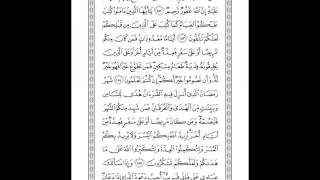 عَلَيْهِ إِنَّ ٱللَّهَ غَفُورٌ رَّحِيمٌ ١٨٢ يَٰٓأَيُّهَا ٱلَّذِينَ ءَامَنُوا۟ كُتِبَ
عَلَيْكُمُ ٱلصِّيَامُ كَمَا كُتِبَ عَلَى ٱلَّذِينَ مِن قَبْلِكُمْ
لَعَلَّكُمْ تَتَّقُونَ ١٨٣ أَيَّامًا مَّعْدُودَٰتٍ فَمَن كَانَ مِنكُم
مَّرِيضًا أَوْ عَلَىٰ سَفَرٍ فَعِدَّةٌ مِّنْ أَيَّامٍ أُخَرَ وَعَلَى ٱلَّذِينَ
يُطِيقُونَهُۥ فِدْيَةٌ طَعَامُ مِسْكِينٍ فَمَن تَطَوَّعَ خَيْرًا فَهُوَ خَيْرٌ
لَّهُۥ وَأَن تَصُومُوا۟ خَيْرٌ لَّكُمْ إِن كُنتُمْ تَعْلَمُونَ ١٨٤ شَهْرُ
رَمَضَانَ ٱلَّذِىٓ أُنزِلَ فِيهِ ٱلْقُرْءَانُ هُدًى لِّلنَّاسِ
وَبَيِّنَٰتٍ مِّنَ ٱلْهُدَىٰ وَٱلْفُرْقَانِ فَمَن شَهِدَ مِنكُمُ ٱلشَّهْرَ
فَلْيَصُمْهُ وَمَن كَانَ مَرِيضًا أَوْ عَلَىٰ سَفَرٍ فَعِدَّةٌ مِّنْ
أَيَّامٍ أُخَرَ يُرِيدُ ٱللَّهُ بِكُمُ ٱلْيُسْرَ وَلَا يُرِيدُ بِكُمُ
ٱلْعُسْرَ وَلِتُكْمِلُوا۟ ٱلْعِدَّةَ وَلِتُكَبِّرُوا۟ ٱللَّهَ عَلَىٰ مَا
هَدَىٰكُمْ وَلَعَلَّكُمْ تَشْكُرُونَ ١٨٥ وَإِذَا سَأَلَكَ
عِبَادِى عَنِّى فَإِنِّى قَرِيبٌ أُجِيبُ دَعْوَةَ ٱلدَّاعِ إِذَا دَعَانِ